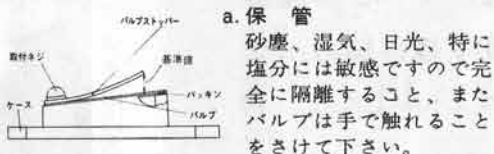 バルブストッパー
取付ネジ
基準値
パッキン
ケース
バルブ
a. 保 管
砂塵、湿気、日光、特に
塩分には敏感ですので完
全に隔離すること、また
バルブは手で触れること
をさけて下さい。